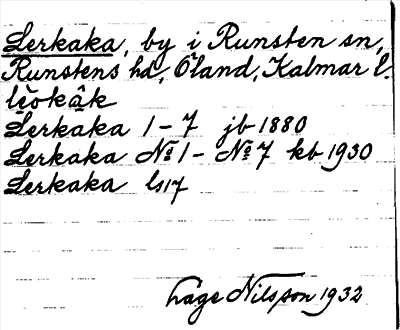 Lerkaka, by i Runsten sn,
Runstens hd, Öland, Kalmar l.
lèokâk
Lerkaka 1-7 jb 1880
Lerkaka № 1 - № 7 kb 1930
Lerkaka ls17
Låge Nilsson 1932